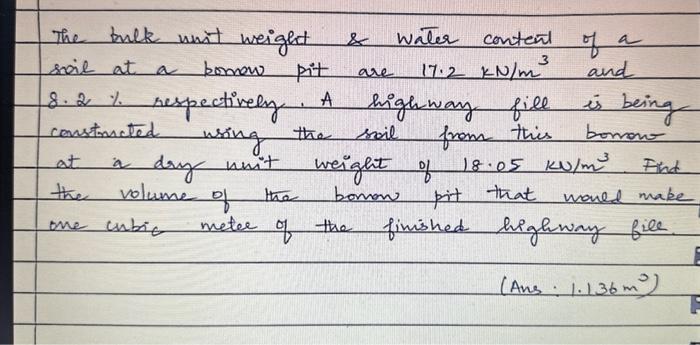 The bulk unit weight & water content of a
soil at a borrow pit are 17.2 kN/m³ and
8.2 % respectively. A highway fill is being
constructed using the soil from this borrow
at a dry unit weight of 18.05 kN/m³. Find
the volume of the borrow pit that would make
one cubic meter of the finished highway fill.
(Ans : 1.136 m³)